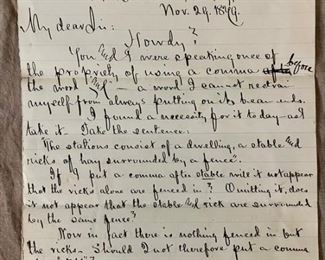 Nov. 29. 1899.
My dear Sir:
Howdy?
You and I were speaking once of
the propriety of using a comma before
the word "and" — a word I cannot restrain
myself from always putting on its beam ends.
I found a necessity for it today — as I
take it. Take the sentence:
"The stations consist of a dwelling, a stable and
ricks of hay surrounded by a fence".
If I put a comma after stable will it not appear
that the ricks alone are fenced in? Omitting it, does
it not appear that the stable and rick are surrounded
by the same fence?
Now in fact there is nothing fenced in but
the ricks. Should I not therefore put a comma